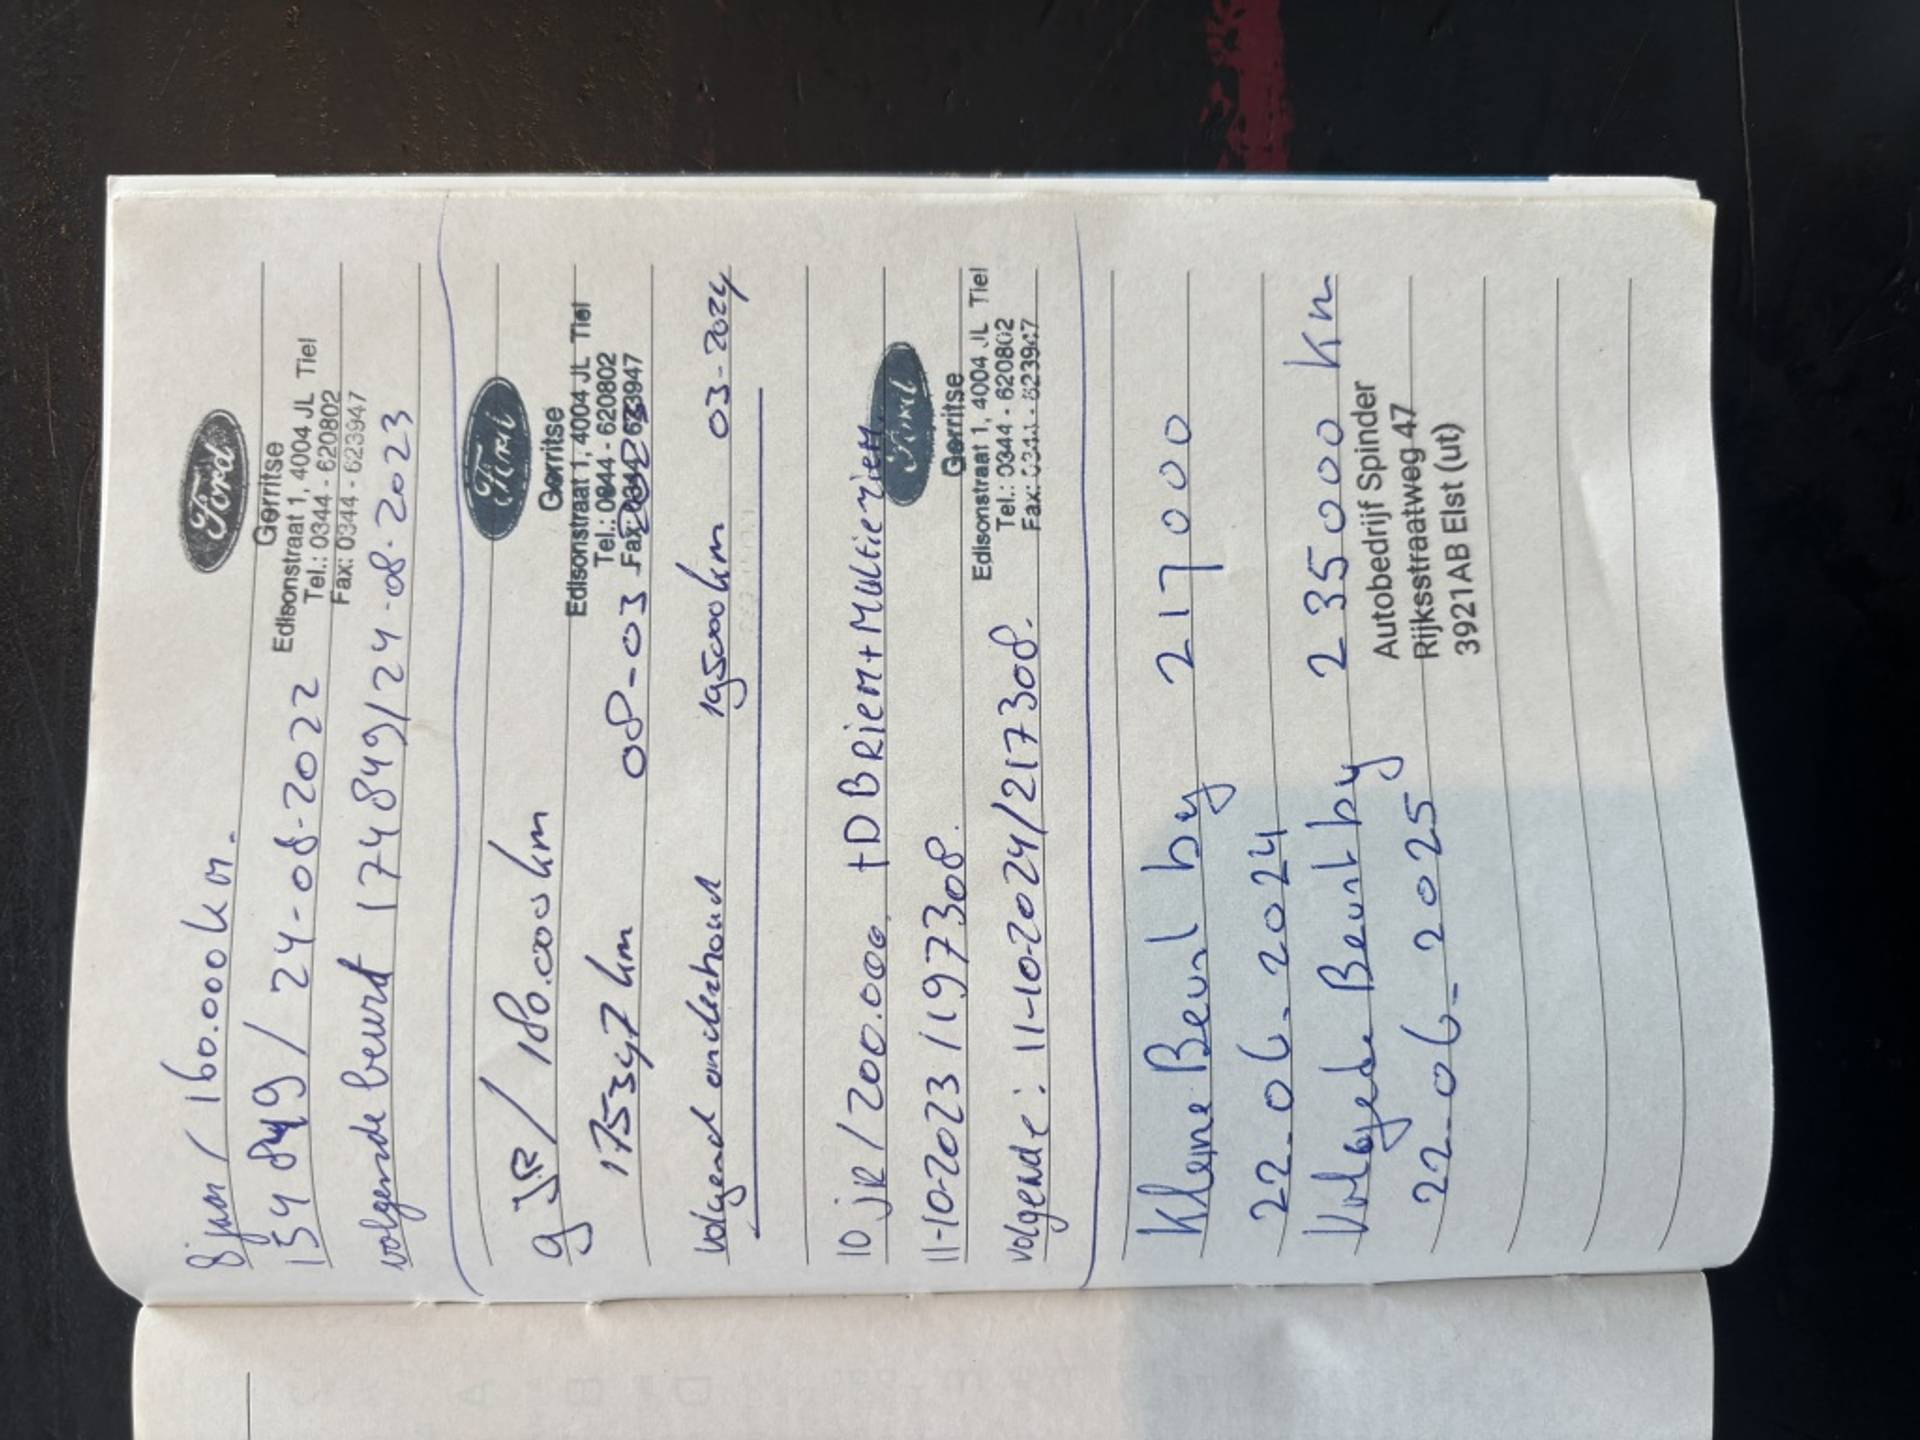 8 jaar / 160.000 km.
Ford
Gerritse
Edisonstraat 1, 4004 JL Tiel
Tel.: 0344 - 620802
Fax: 0344 - 623947
154849 / 24-08-2022
volgende beurt 174849 / 24-08-2023
9 JR / 180.000 km
Ford
Gerritse
Edisonstraat 1, 4004 JL Tiel
Tel.: 0344 - 620802
Fax: 0344 - 623947
175347 km 08-03-2023
volgend onderhoud 195000 km 03-2024
10 jR / 200.000 + DBRiem + Multiriem.
Ford
Gerritse
Edisonstraat 1, 4004 JL Tiel
Tel.: 0344 - 620802
Fax: 0344 - 623947
11-10-2023 / 197308.
volgende: 11-10-2024 / 217308.
Kleine Beurt by 217000
22-06-2024
Volgede Beurt by 235000 km
22-06-2025
Autobedrijf Spinder
Rijksstraatweg 47
3921AB Elst (ut)